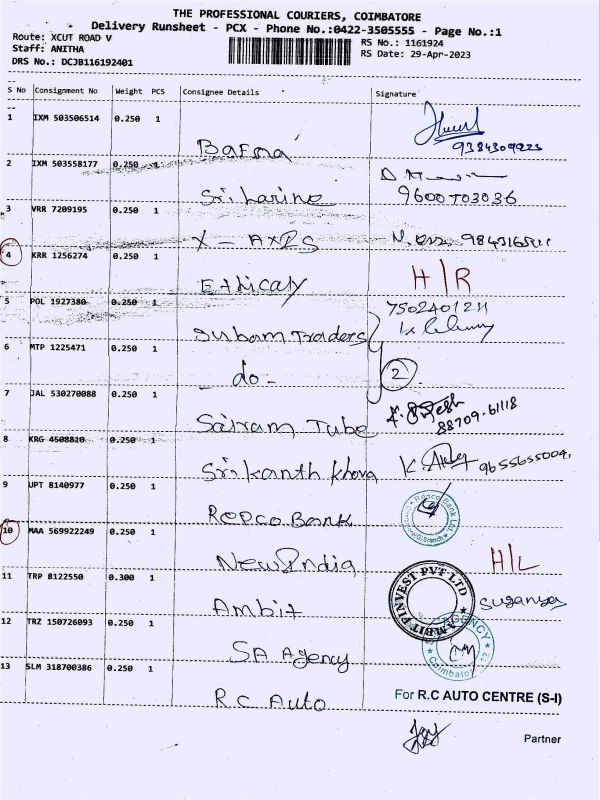 THE PROFESSIONAL COURIERS, COIMBATORE
Delivery Runsheet - PCX - Phone No.:0422-3505555 - Page No.:1
Route: XCUT ROAD V
RS No.: 1161924
Staff: ANITHA
RS Date: 29-Apr-2023
DRS No.: DCJB116192401
S No Consignment No Weight PCS Consignee Details Signature
1 IXM 503506514 0.250 1
Bafna 9384309223
2 IXM 503558177 0.250 1
Sri Larine 9600703036
3 VRR 7209195 0.250 1
X - AXPS
4 KRR 1256274 0.250 1
Ethicaly H/R
5 POL 1927380 0.250 1
7502401211
Subam Traders
6 MTP 1225471 0.250 1
- do - 2
7 JAL 530270088 0.250 1
Sairam Tube 88709-61118
8 KRG 4508810 0.250 1
Srikanth Khova 9655655004
9 UPT 8140977 0.250 1
Repco Bank Repco Bank Ltd
10 MAA 569922249 0.250 1
New India H/L
11 TRP 8122550 0.300 1
Ambit AMBIT FINVEST PVT LTD Suganya
12 TRZ 150726093 0.250 1
SA Agency AGENCY Coimbatore
13 SLM 318700386 0.250 1
R.C Auto For R.C AUTO CENTRE (S-I)
Partner